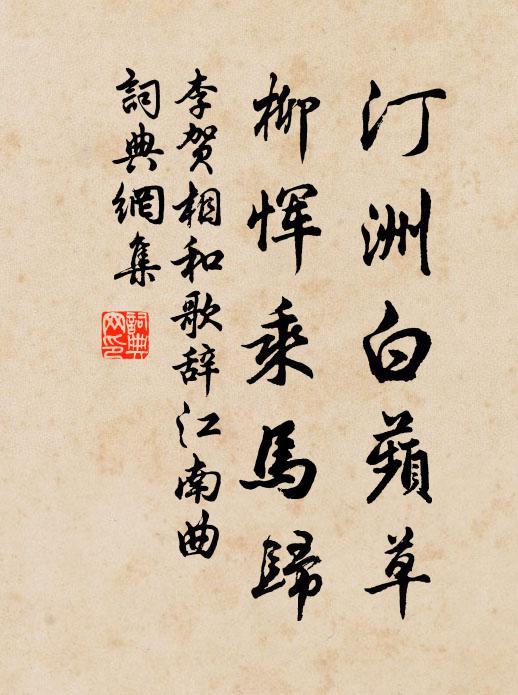 汀洲白蘋草
柳惲乘馬歸
李賀相和歌辞江南曲
詞典網集
詞典網印